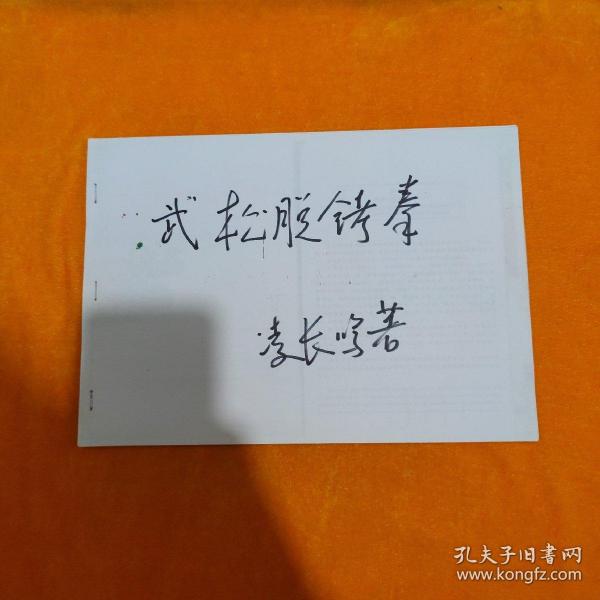 武松脱铐拳
凌长鸣著
孔夫子旧書网
www.kongfz.com